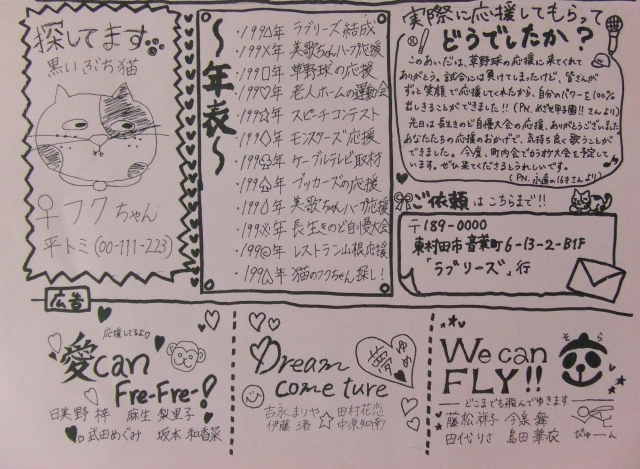 探してます
黒いぶち猫
♀フクちゃん
平トミ(00-111-223)
〜年表〜
・199△年 ラブリーズ結成
・199X年 美歌ちゃんハーフ応援
・199□年 草野球の応援
・199♡年 老人ホームの運動会
・199☆年 スピーチコンテスト
・199◇年 モンスターズ応援
年 ケーブルテレビ取材
年 ブッカーズの応援
・199△年 美歌ちゃんハーフ応援
年 長生きのど自慢大会
・199◎年 レストラン山根応援
年 猫のフクちゃん探し!
実際に応援してもらって
どうでしたか?
このあいだは、草野球の応援に来てくれて
ありがとう。試合には負けてしまったけど、皆さんが
ずっと笑顔で応援してくれたから、自分のパワーを100%
出しきることができました!!(P.N.めざせ甲子園!!さんより)
先日は長生きのど自慢大会の応援、ありがとうございました
あなたたちの応援のおかげで、気持ち良く歌うことが
できました。今度、町内会でカラオケ大会を予定して
います。ぜひ来てくださるとうれしいです。
(P.N.永遠の16才さんより)
ご依頼はこちらまで!!
〒189-0000
東村田市音葉町6-13-2-B1F
「ラブリーズ」行
広告
応援してるよ♡
愛can
Fre-Fre-!
日美野 梓 麻生 梨里子
武田めぐみ 坂本 和香菜
Dream
come ture
夢
ゆめ
吉永まりや 田村花恋
伊藤 渚 ☆ 中原知南
We can
FLY!!
そら
どこまでも飛んでゆきます
藤松祥子 今泉 舞
田代りさ 島田華衣
ぴゅーん